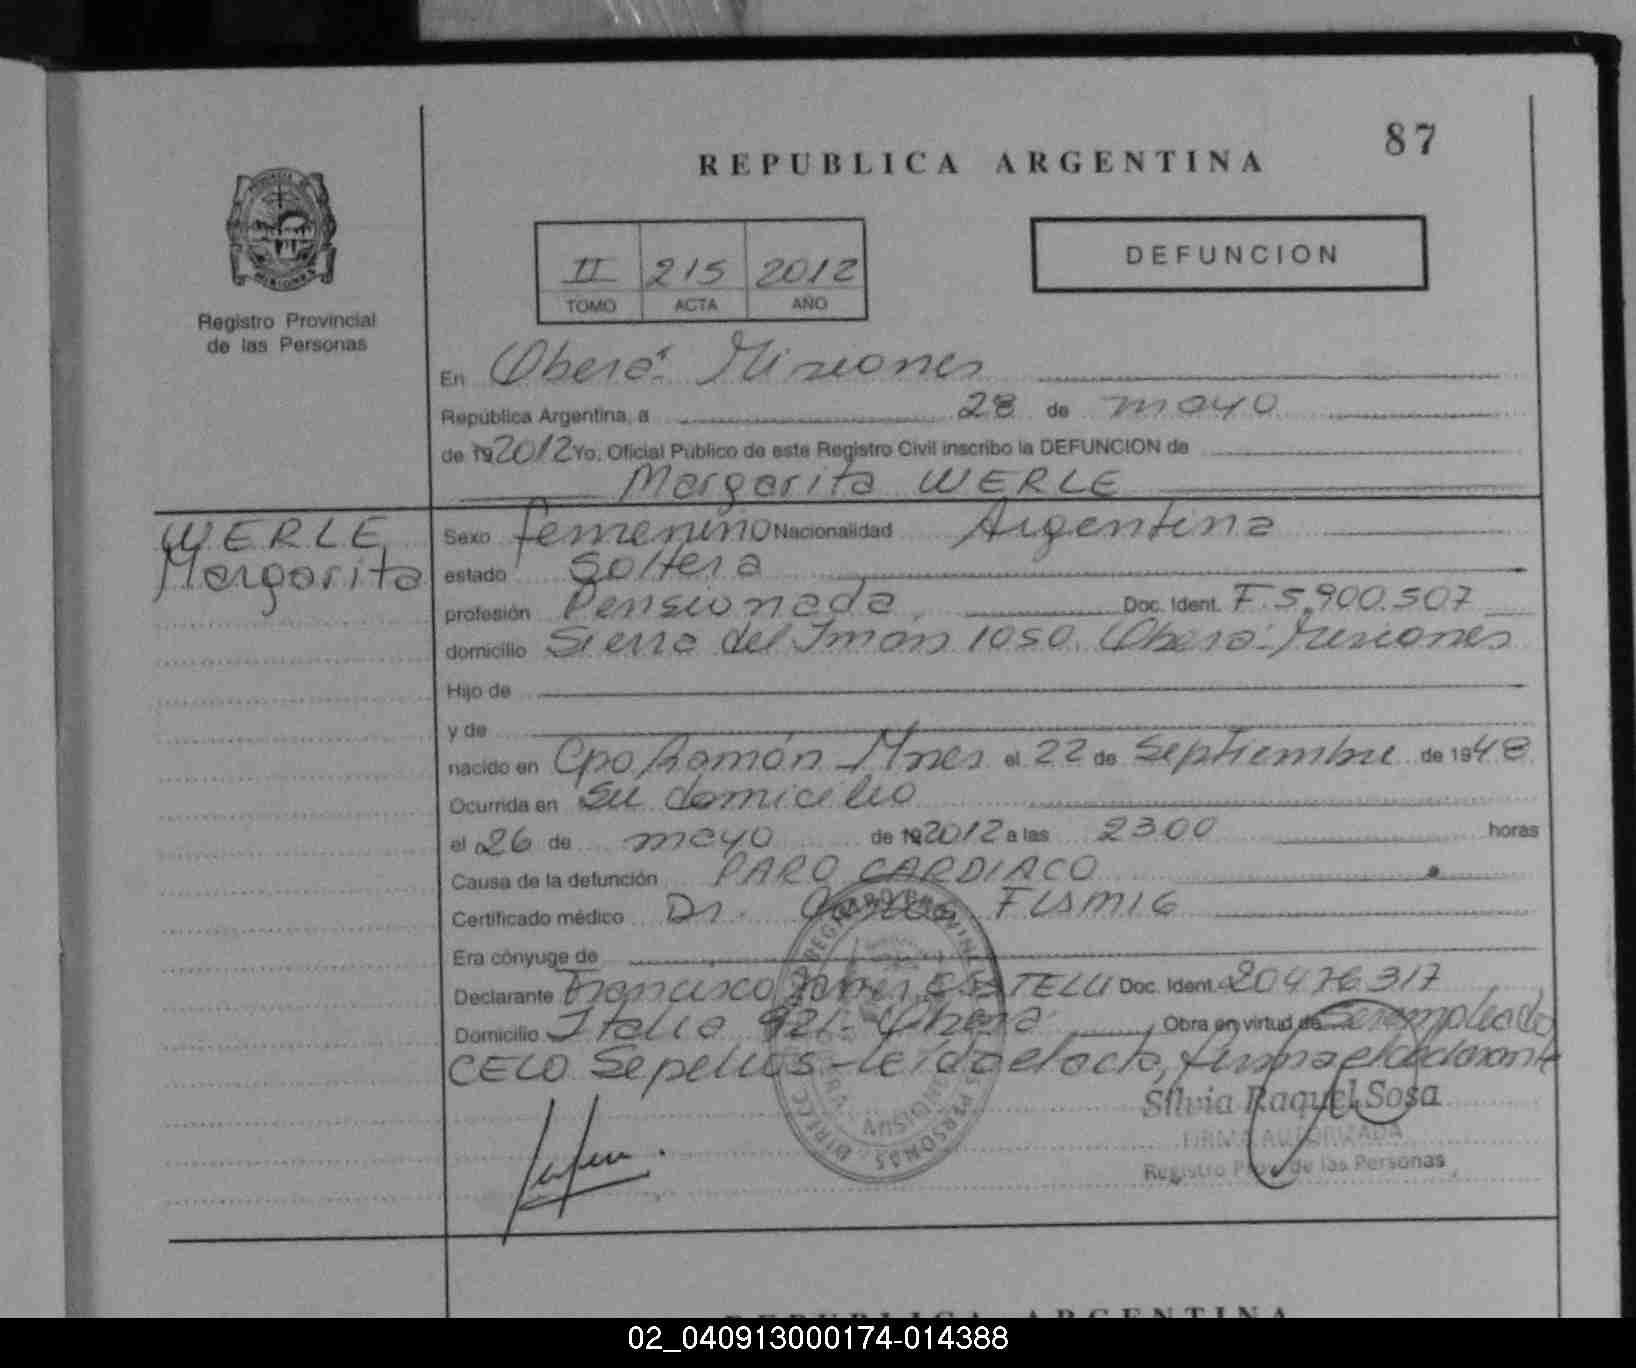 87
REPUBLICA ARGENTINA
DEFUNCION
II 215 2012
TOMO ACTA AÑO
Registro Provincial
de las Personas
En Oberá - Misiones
República Argentina, a 28 de mayo
de 192012 Yo, Oficial Público de este Registro Civil inscribo la DEFUNCION de
Margarita WERLE
WERLE
Margarita
Sexo femenino Nacionalidad Argentina
estado Soltera
profesión Pensionada Doc. Ident. F 5.900.507
domicilio Sierra del Iman 1050. Oberá - Misiones
Hijo de
y de
nacido en Cpo Ramón - Mnes el 22 de Septiembre de 1948
Ocurrida en su domicilio
el 26 de mayo de 192012 a las 2300 horas
Causa de la defunción PARO CARDIACO
Certificado médico Dr. FLSMIG
Era cónyuge de
Declarante Francisco Doc. Ident. 20476317
Domicilio Italia 921 - Oberá Obra en virtud de Ser empleado
CELO Sepelios - Leída el acta, firma el declarante
Silvia Raquel Sosa
FIRMA AUTORIZADA
Registro Prov. de las Personas
REPUBLICA ARGENTINA
02_040913000174-014388